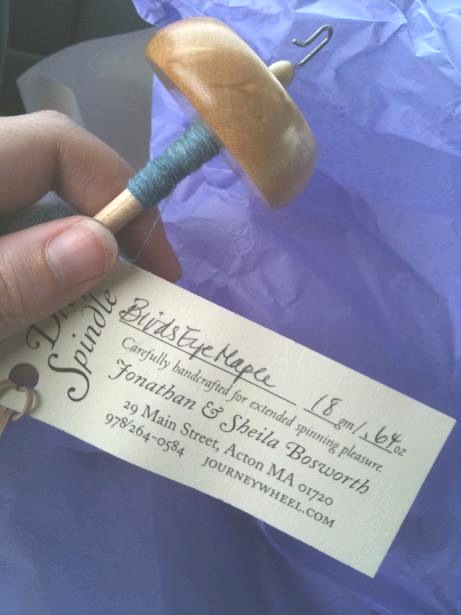 Dr
Spindle
BirdsEye Maple 18 gm/.64 oz
Carefully handcrafted for extended spinning pleasure
Jonathan & Sheila Bosworth
29 Main Street, Acton MA 01720
978/264-0584 JOURNEYWHEEL.COM